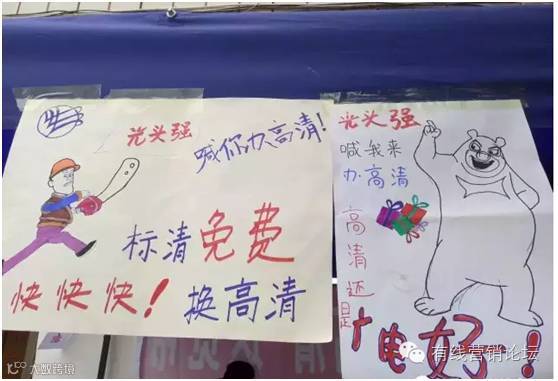 光头强
喊你办高清!
标清免费
快快快!换高清
光头强
喊我来
办高清
高清还是
广电好!
有线营销论坛
大数跨境